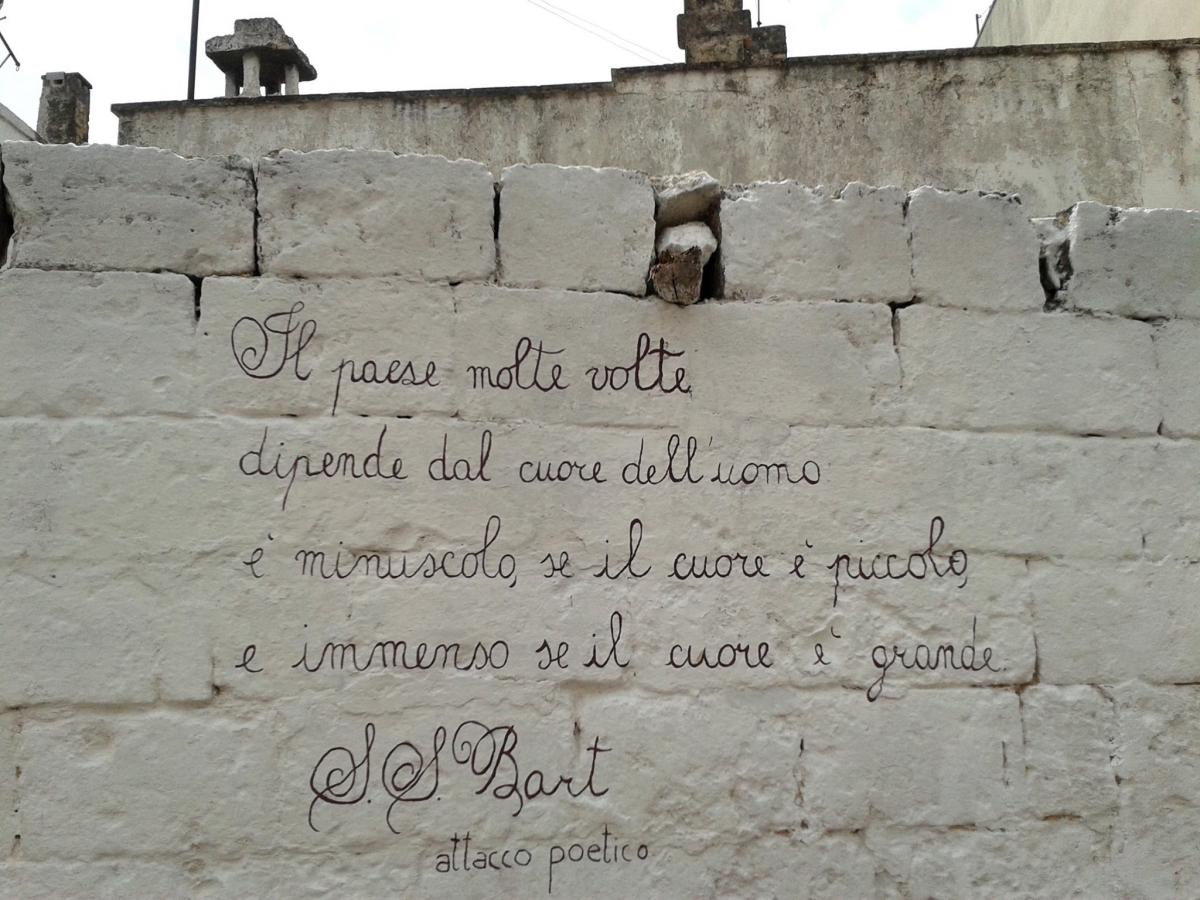 Il paese molte volte
dipende dal cuore dell'uomo
è minuscolo, se il cuore è piccolo,
e immenso se il cuore è grande.
S.S. Bart
attacco poetico